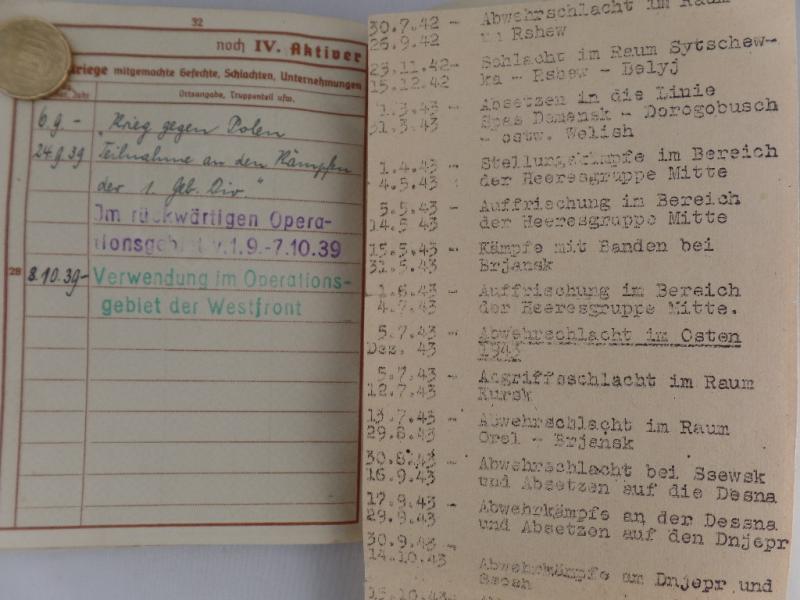 32
noch IV. Aktiver
kriege mitgemachte Gefechte, Schlachten, Unternehmungen
Jahr
Ortsangabe, Truppenteil usw.
6.9.- „Krieg gegen Polen
24.9.39 Teilnahme an den Kämpfen
der 1. Geb. Div."
Im rückwärtigen Opera-
tionsgebiet v.1.9.-7.10.39
28 8.10.39- Verwendung im Operations-
gebiet der Westfront
30.7.42 - Abwehrschlacht im Raum
26.9.42 um Rshew
23.11.42- Schlacht im Raum Sytschew-
15.12.42 ka - Rshew - Belyj
1.3.43 - Absetzen in die Linie
31.3.43 Spas Demensk - Dorogobusch
- ostw. Welish
1.4.43 - Stellungskämpfe im Bereich
4.5.43 der Heeresgruppe Mitte
5.5.43 - Auffrischung im Bereich
14.5.43 der Heeresgruppe Mitte
15.5.43 - Kämpfe mit Banden bei
31.5.43 Brjansk
1.6.43 - Auffrischung im Bereich
4.7.43 der Heeresgruppe Mitte.
5.7.43 - Abwehrschlacht im Osten
Dez. 43 1943
5.7.43 - Angriffsschlacht im Raum
12.7.43 Kursk
13.7.43 - Abwehrschlacht im Raum
29.8.43 Orel - Brjansk
30.8.43 - Abwehrschlacht bei Ssewsk
16.9.43 und Absetzen auf die Desna
17.9.43 - Abwehrkämpfe an der Dessna
29.9.43 und Absetzen auf den Dnjepr
30.9.43 - Abwehrkämpfe am Dnjepr und
14.10.43 Ssosh
15.10.43 -